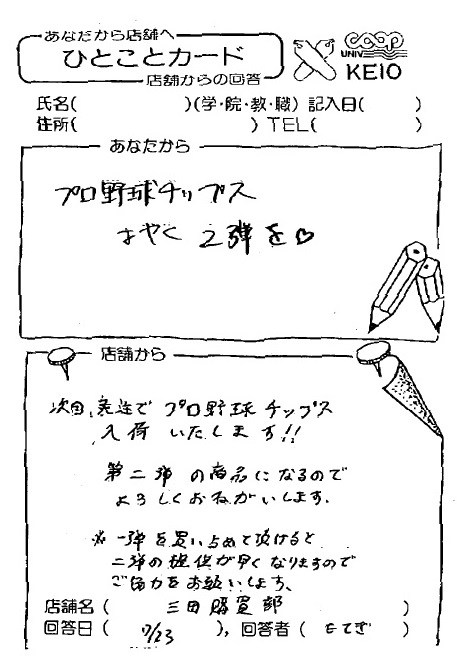 あなたから店舗へ
ひとことカード
店舗からの回答
UNIV COOP
KEIO
氏名( )(学・院・教・職) 記入日( )
住所( ) TEL( )
あなたから
プロ野球チップス
はやく 2弾を♡
店舗から
次回発注で プロ野球チップス
入荷いたします!!
第二弾の商品になるので
よろしくおねがいします。
※一弾を買い占めて頂けると
二弾の提供が早くなりますので
ご協力をお願いします。
店舗名( 三田購買部 )
回答日( 7/23 ), 回答者( もてぎ )